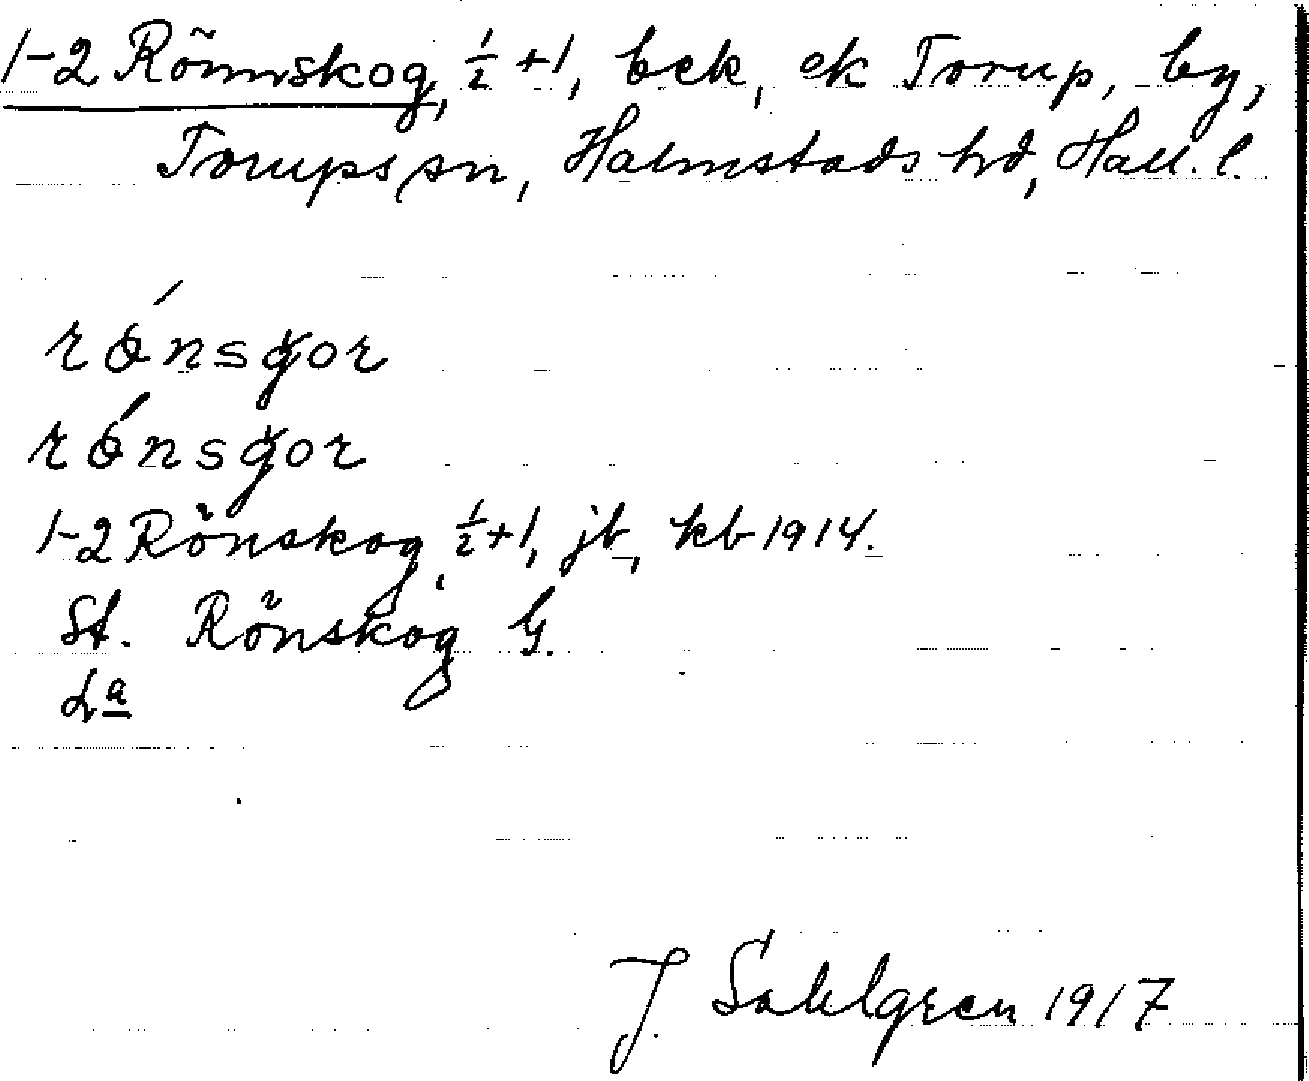 1-2 Rönnskog, ½ +1, bck, ek Torup, by,
Torups sn, Halmstads hd, Hall. l.
rǿnsgor
rǿnsgor
1-2 Rönskog, ½+1, jb, kb 1914.
St. Rönskog G.
La
J. Sahlgren 1917